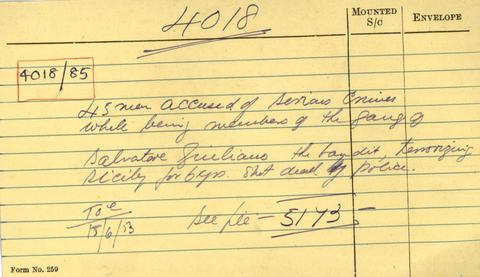 4018
MOUNTED S/C
ENVELOPE
4018/85
45 men accused of serious crimes
while being members of the gang of
Salvatore Giuliano the bandit terrorizing
Sicily for 6 yrs. Shot dead by police.
15/6/53
See file - 5173
FORM NO. 259